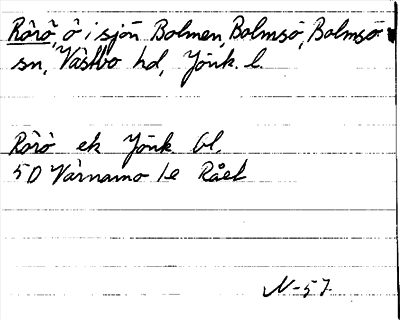 Rörö, ö i sjön Bolmen, Bolmsö, Bolmsö
sn, Västbo hd, Jönk. l.
Rörö ek Jönk. bl.
50 Värnamo 1e Råel
N-57.